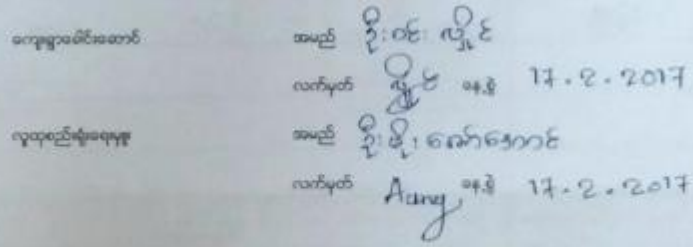 ကျေးရွာခေါင်းဆောင် အမည် ဦးဝင်းလှိုင်
လက်မှတ် လှိုင် နေ့စွဲ 17.2.2017
လူထုစည်းရုံးရေးမှူး အမည် ဦးဖိုးဇော်အောင်
လက်မှတ် Aung နေ့စွဲ 17.2.2017